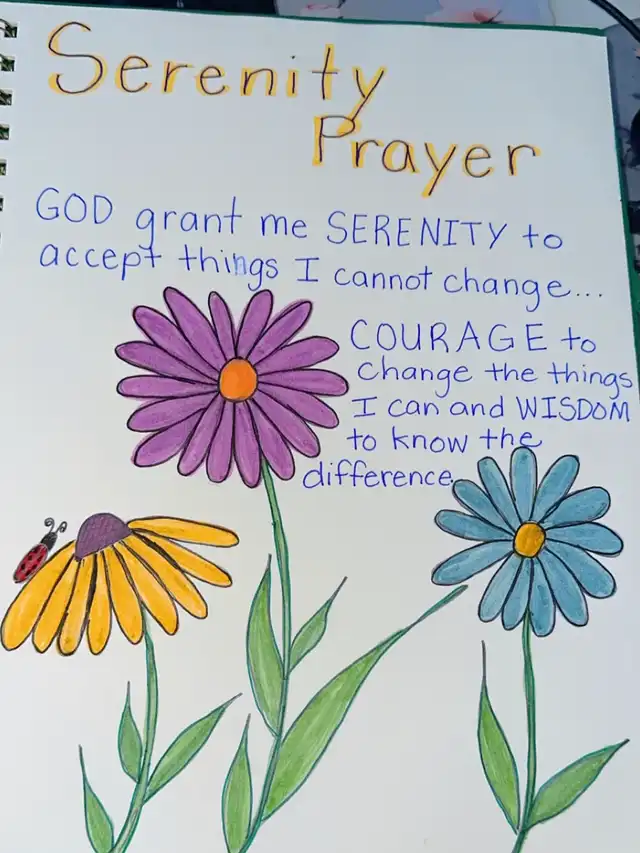 Serenity
Prayer
GOD grant me SERENITY to
accept things I cannot change...
COURAGE to
change the things
I can and WISDOM
to know the
difference.